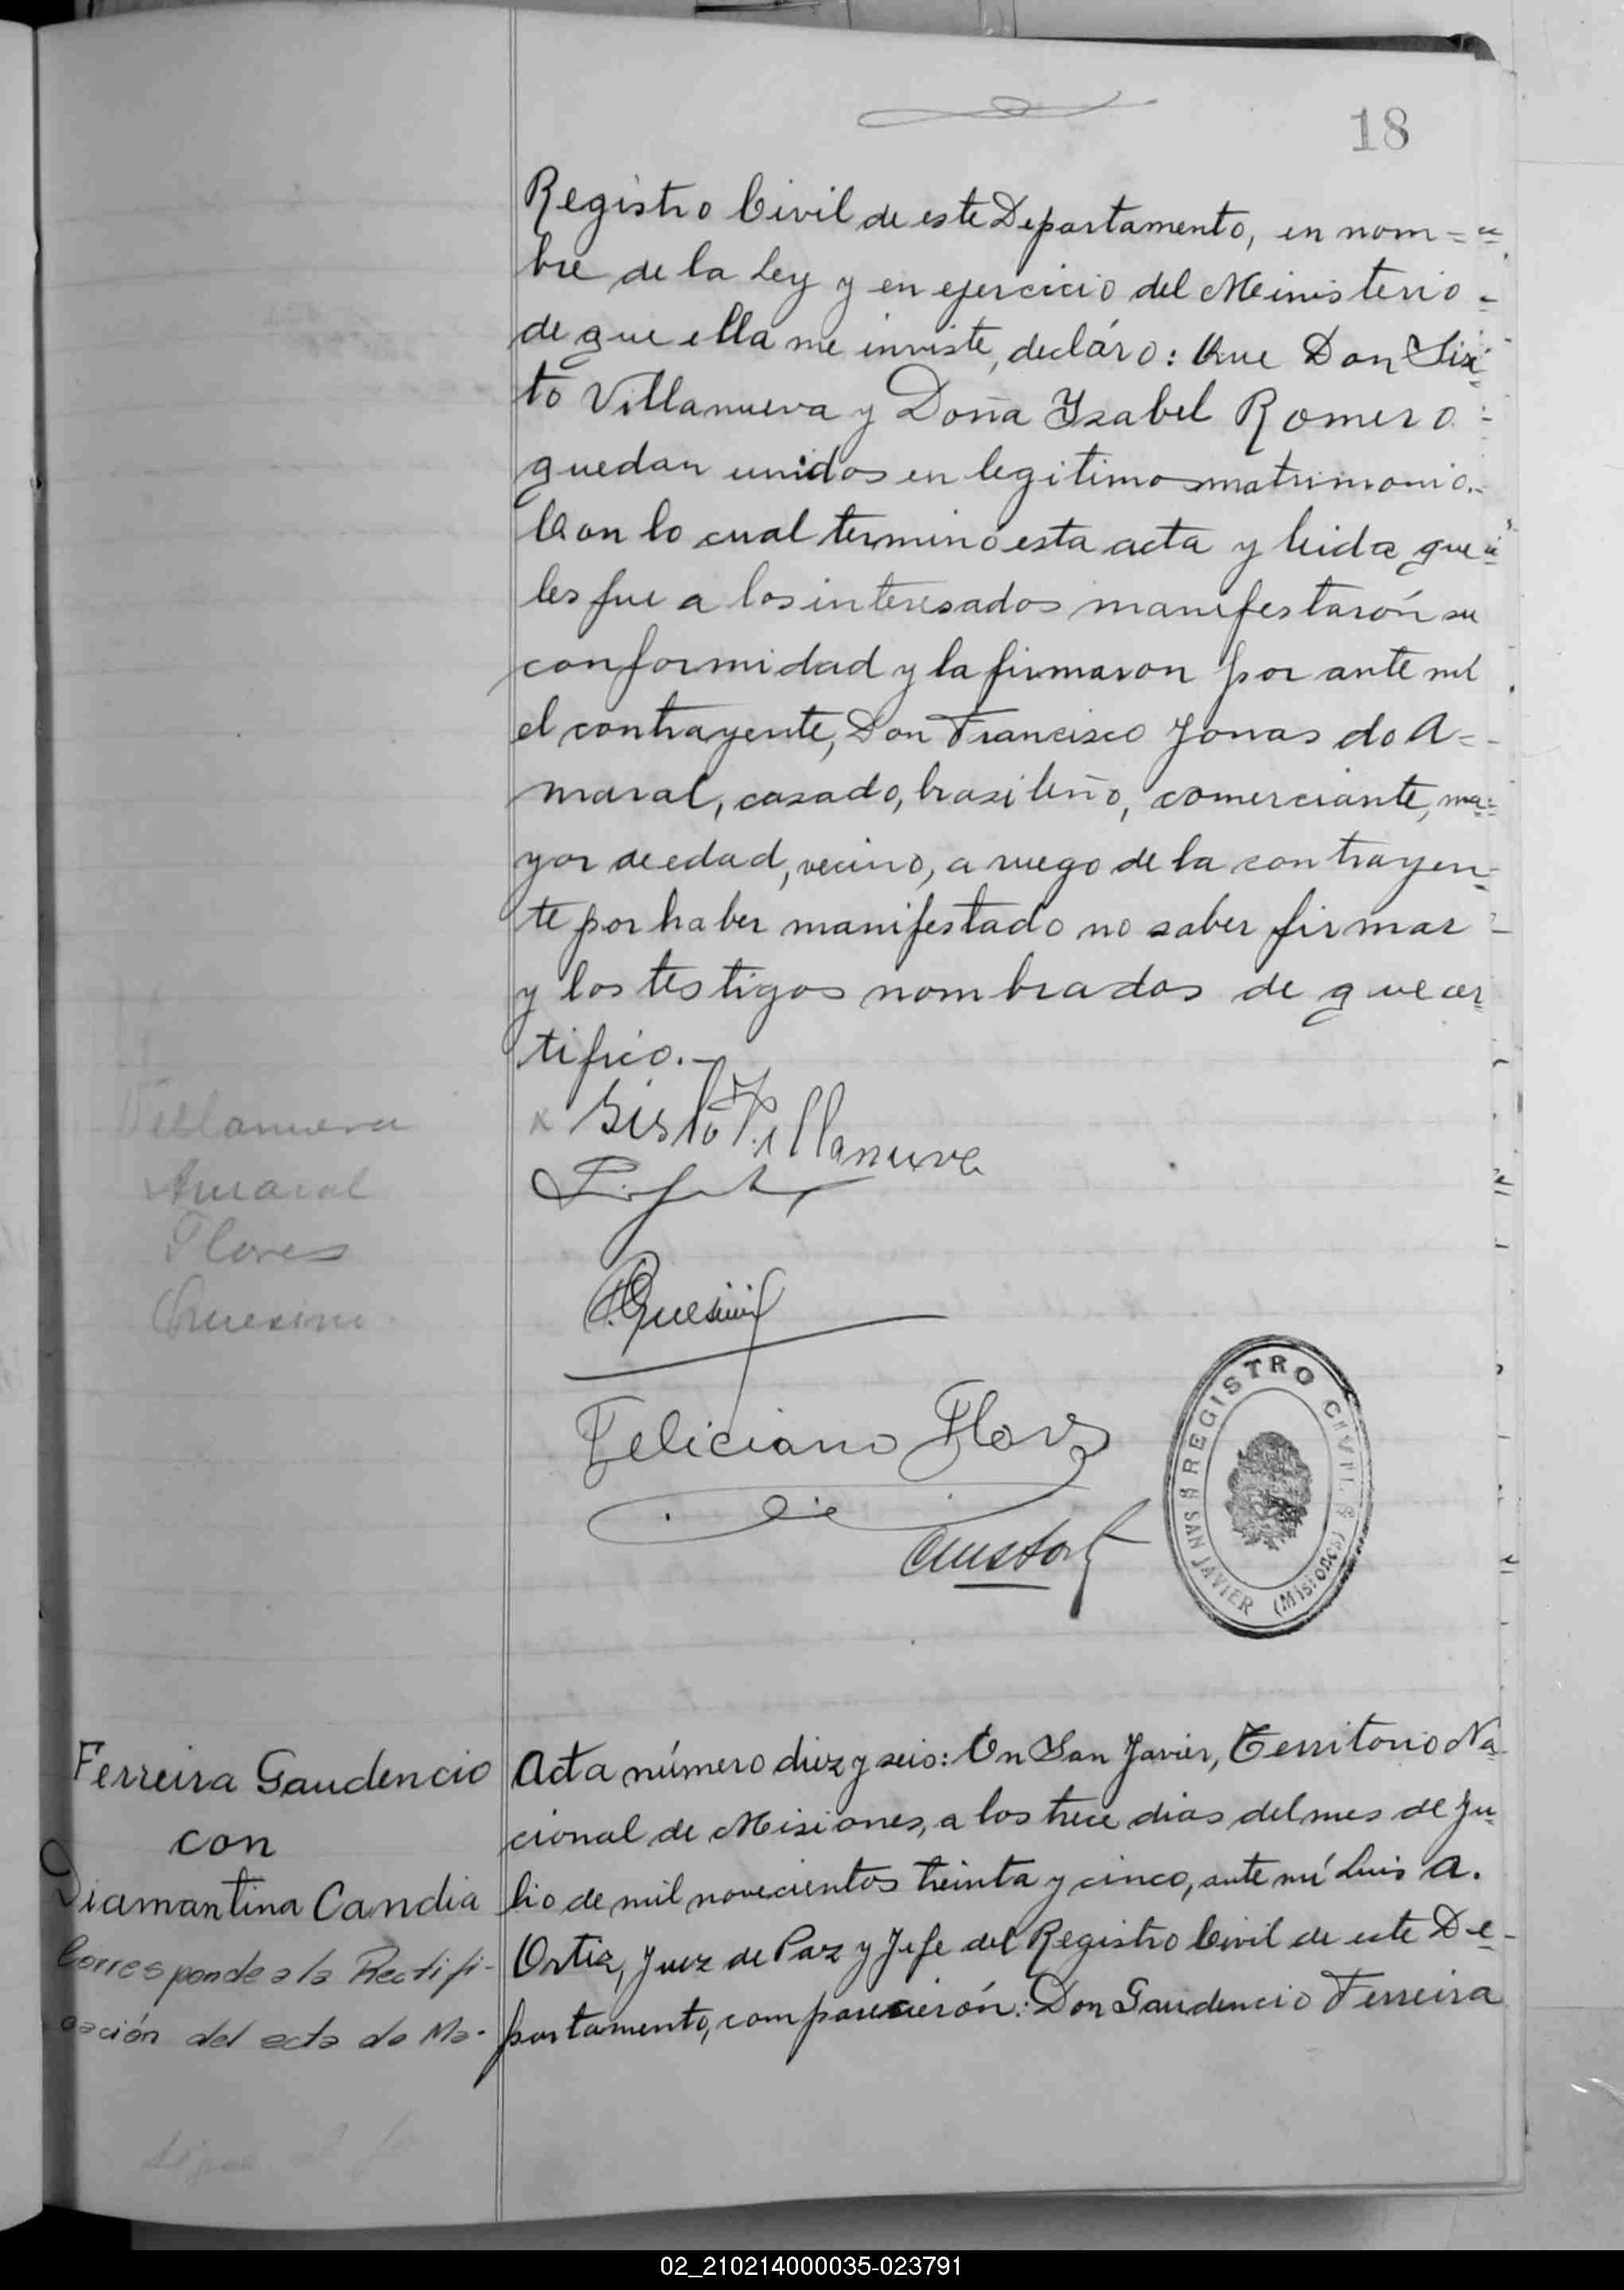 18
Registro Civil de este Departamento, en nom=
bre de la Ley y en ejercicio del Ministerio -
de que ella me inviste, decláro: Que Don Six
to Villanueva y Doña Ysabel Romero -
quedan unidos en legitimo matrimonio.-
Con lo cual terminó esta acta y leida que
les fue a los interesados manifestarón su
conformidad y la firmaron por ante mi
el contrayente, Don Francisco Jonas do A=
maral, casado, brasileño, comerciante, ma=
yor de edad, vecino, a ruego de la contrayen-
te por haber manifestado no saber firmar -
y los testigos nombrados de que cer
tifico.-
x Sisto Villanueva
Villanueva
Amaral
Flores
Feliciano Flores
REGISTRO CIVIL
SAN JAVIER (Misiones)
Ferreira Gaudencio
con
Diamantina Candia
Corresponde a la Rectifi-
cación del acta de Ma-
Acta número diez y seis: En San Javier, Territorio Na
cional de Misiones, a los trece dias del mes de Ju
lio de mil novecientos treinta y cinco, ante mí Luis A.
Ortiz, Juez de Paz y Jefe del Registro Civil de este De-
partamento, comparecierón: Don Gaudencio Ferreira
02_210214000035-023791